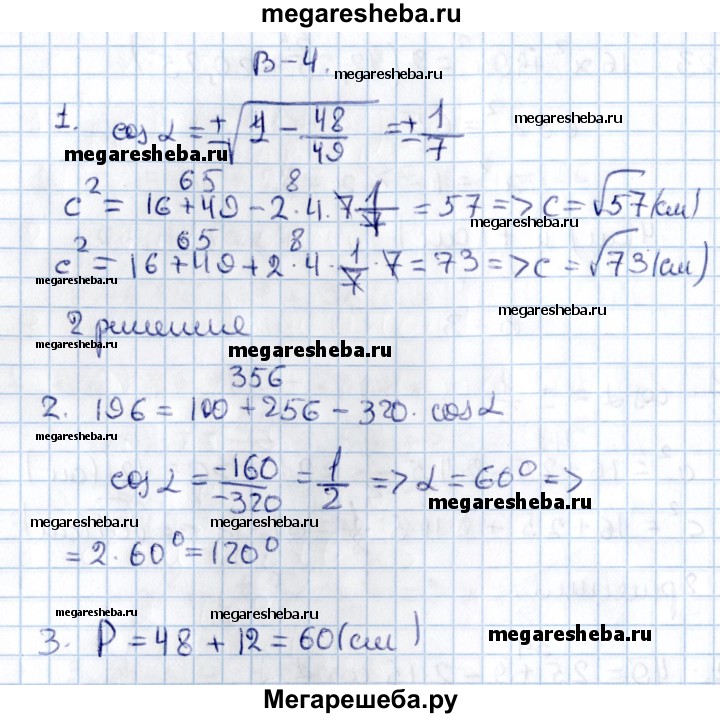 megaresheba.ru
В-4.
megaresheba.ru
1. cos α = ±√(1 - 48/49) = ± 1/7
megaresheba.ru
megaresheba.ru
65 8
c² = 16 + 49 - 2 · 4 · 7 · 1/7 = 57 => c = √57 (см)
megaresheba.ru
65 8
c² = 16 + 49 + 2 · 4 · 1/7 · 7 = 73 => c = √73 (см)
megaresheba.ru
megaresheba.ru
2 решение
megaresheba.ru
megaresheba.ru
356
2. 196 = 100 + 256 - 320 · cos α
megaresheba.ru
cos α = -160/-320 = 1/2 => α = 60° =>
megaresheba.ru
megaresheba.ru
megaresheba.ru
= 2 · 60° = 120°
megaresheba.ru
megaresheba.ru
3. P = 48 + 12 = 60 (см)
megaresheba.ru
megaresheba.ru
Мегарешеба.ру